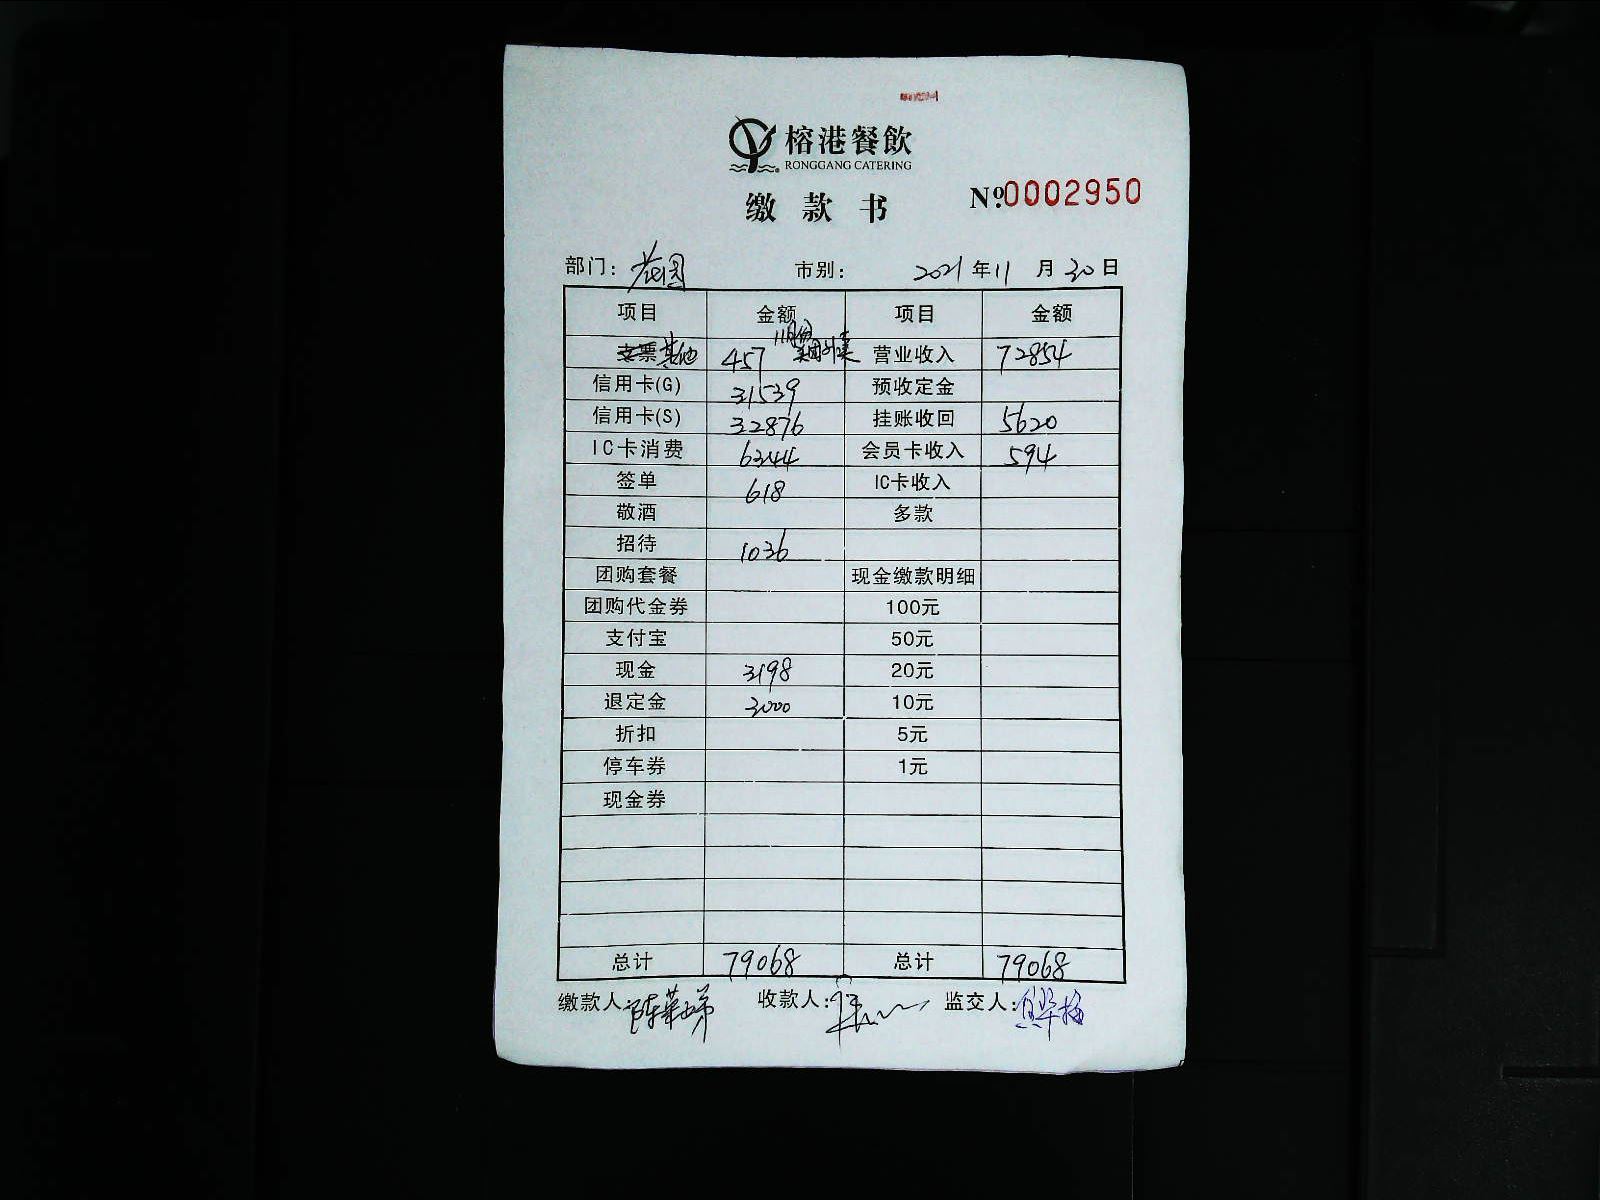 榕港餐飲
RONGGANG CATERING
缴款书 Nº:0002950
部门: 花园 市别: 2021年11月30日
项目 金额 项目 金额
支票其他 457 11月份美团外卖 营业收入 72854
信用卡(G) 31539 预收定金
信用卡(S) 32876 挂账收回 5620
IC卡消费 6344 会员卡收入 594
签单 618 IC卡收入
敬酒 多款
招待 1036
团购套餐 现金缴款明细
团购代金券 100元
支付宝 50元
现金 3198 20元
退定金 3000 10元
折扣 5元
停车券 1元
现金券
总计 79068 总计 79068
缴款人: 收款人: 监交人: